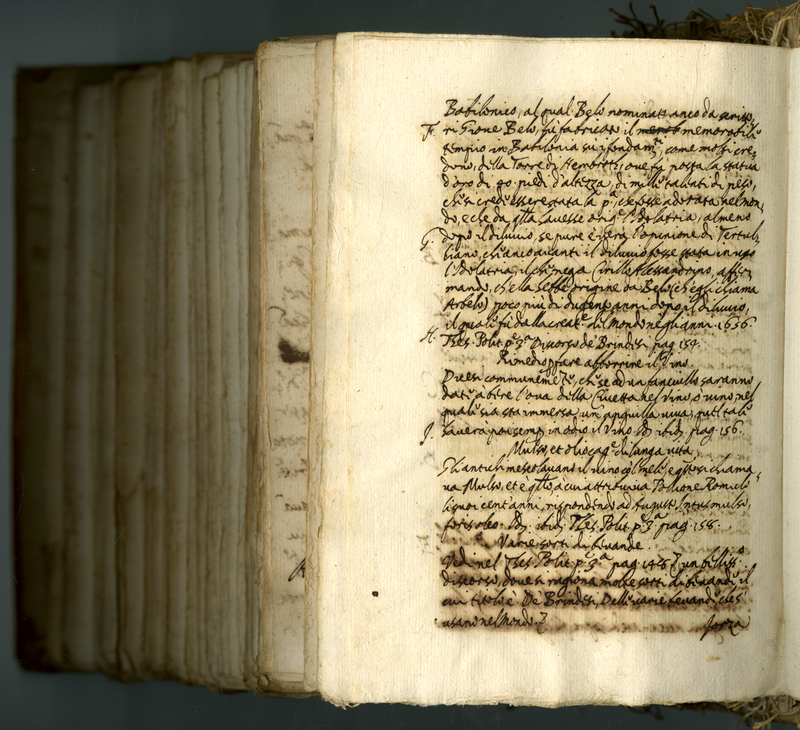 Babilonico, al qual Belo nominato anco da scritto,
F. ri Giove Belo, fù fabricato il memorabile
tempio in Babilonia sui fondam.ti, come molti cre,
dono, della Torre di Nembrot, ove fù posta la statua
d'oro di 40. piedi d'altezza, di mille talenti di peso,
che si crede essere stata la p.a, che fosse adorata nel mon,
do, e che da q̃lla havesse orig.e l'Idolatria, almeno
G. dopo il diluvio, se pure è vera l'opinione di Tertul,
liano, che anco avanti il diluvio fosse stata in uso
l'Idolatria, il che nega Cirillo Alessandrino, affir,
mando, che ella hebbe origine da Belo (ch'egli chiama
Arbelo) poco più di dugent'anni dopo il diluvio,
il quale fù dalla creat.e del Mondo negli anni 1656.
H. Thes. Polit. p.e 3.a Discorso de Brindesi pag. 159.
Rimedio p fare aborrire il Vino.
Dicesi communem.te, che se ad un fanciullo saranno
date à bere l'ova della Civetta nel Vino, ò vino, nel
quale sia sta immersa un'anguilla viva, quel tale
J. haverà poi semp in odio il Vino. Id. ibid. pag. 156.
Mulso, et olio cag.e di lunga vita.
Gli antichi mescolavano il vino col mele, e q̃sto si chiama,
va Mulso, et è q̃llo, à cui attribuiva Pollione Romulo
li suoi cent'anni, rispondendo ad Augusto, Intus mulso,
foris oleo. Id. ibid. Thes. Polit. p.e 3.a pag. 158.
Varie sorti di bevande.
Vedi nel Thes. Polit. p.e 3.a pag. 148 un belliss.o
discorso, dove si ragiona molte sorti di bevande, il
cui titolo è De Brindesi, Delle varie bevande, che s'
usano nel Mondo.
forza